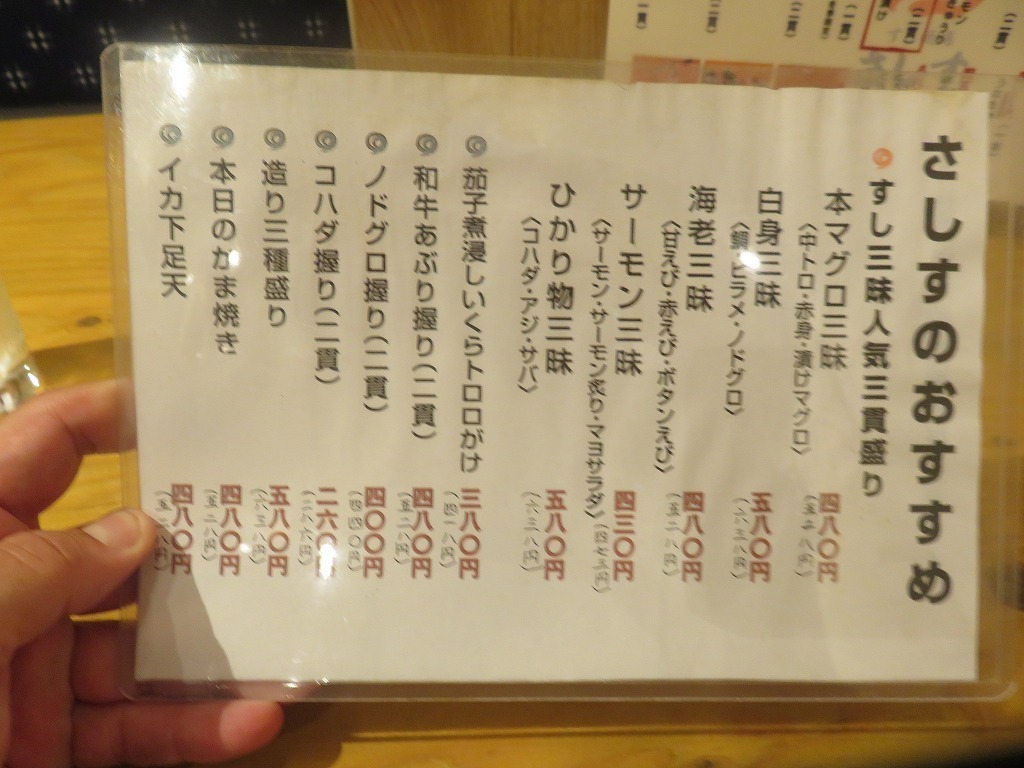 さしすのおすすめ
すし三昧人気三貫盛り
本マグロ三昧 四八〇円
〈中トロ・赤身・漬けマグロ〉 (五二八円)
白身三昧 五八〇円
〈鯛・ヒラメ・ノドグロ〉 (六三八円)
海老三昧 四八〇円
〈甘えび・赤えび・ボタンえび〉 (五二八円)
サーモン三昧 四三〇円
〈サーモン・サーモン炙り・マヨサラダ〉 (四七三円)
ひかり物三昧 五八〇円
〈コハダ・アジ・サバ〉 (六三八円)
茄子煮浸しいくらトロロがけ 三八〇円
(四一八円)
和牛あぶり握り(二貫) 四八〇円
(五二八円)
ノドグロ握り(二貫) 四〇〇円
(四四〇円)
コハダ握り(二貫) 二六〇円
(二八六円)
造り三種盛り 五八〇円
(六三八円)
本日のかま焼き 四八〇円
(五二八円)
イカ下足天 四八〇円
(五二八円)